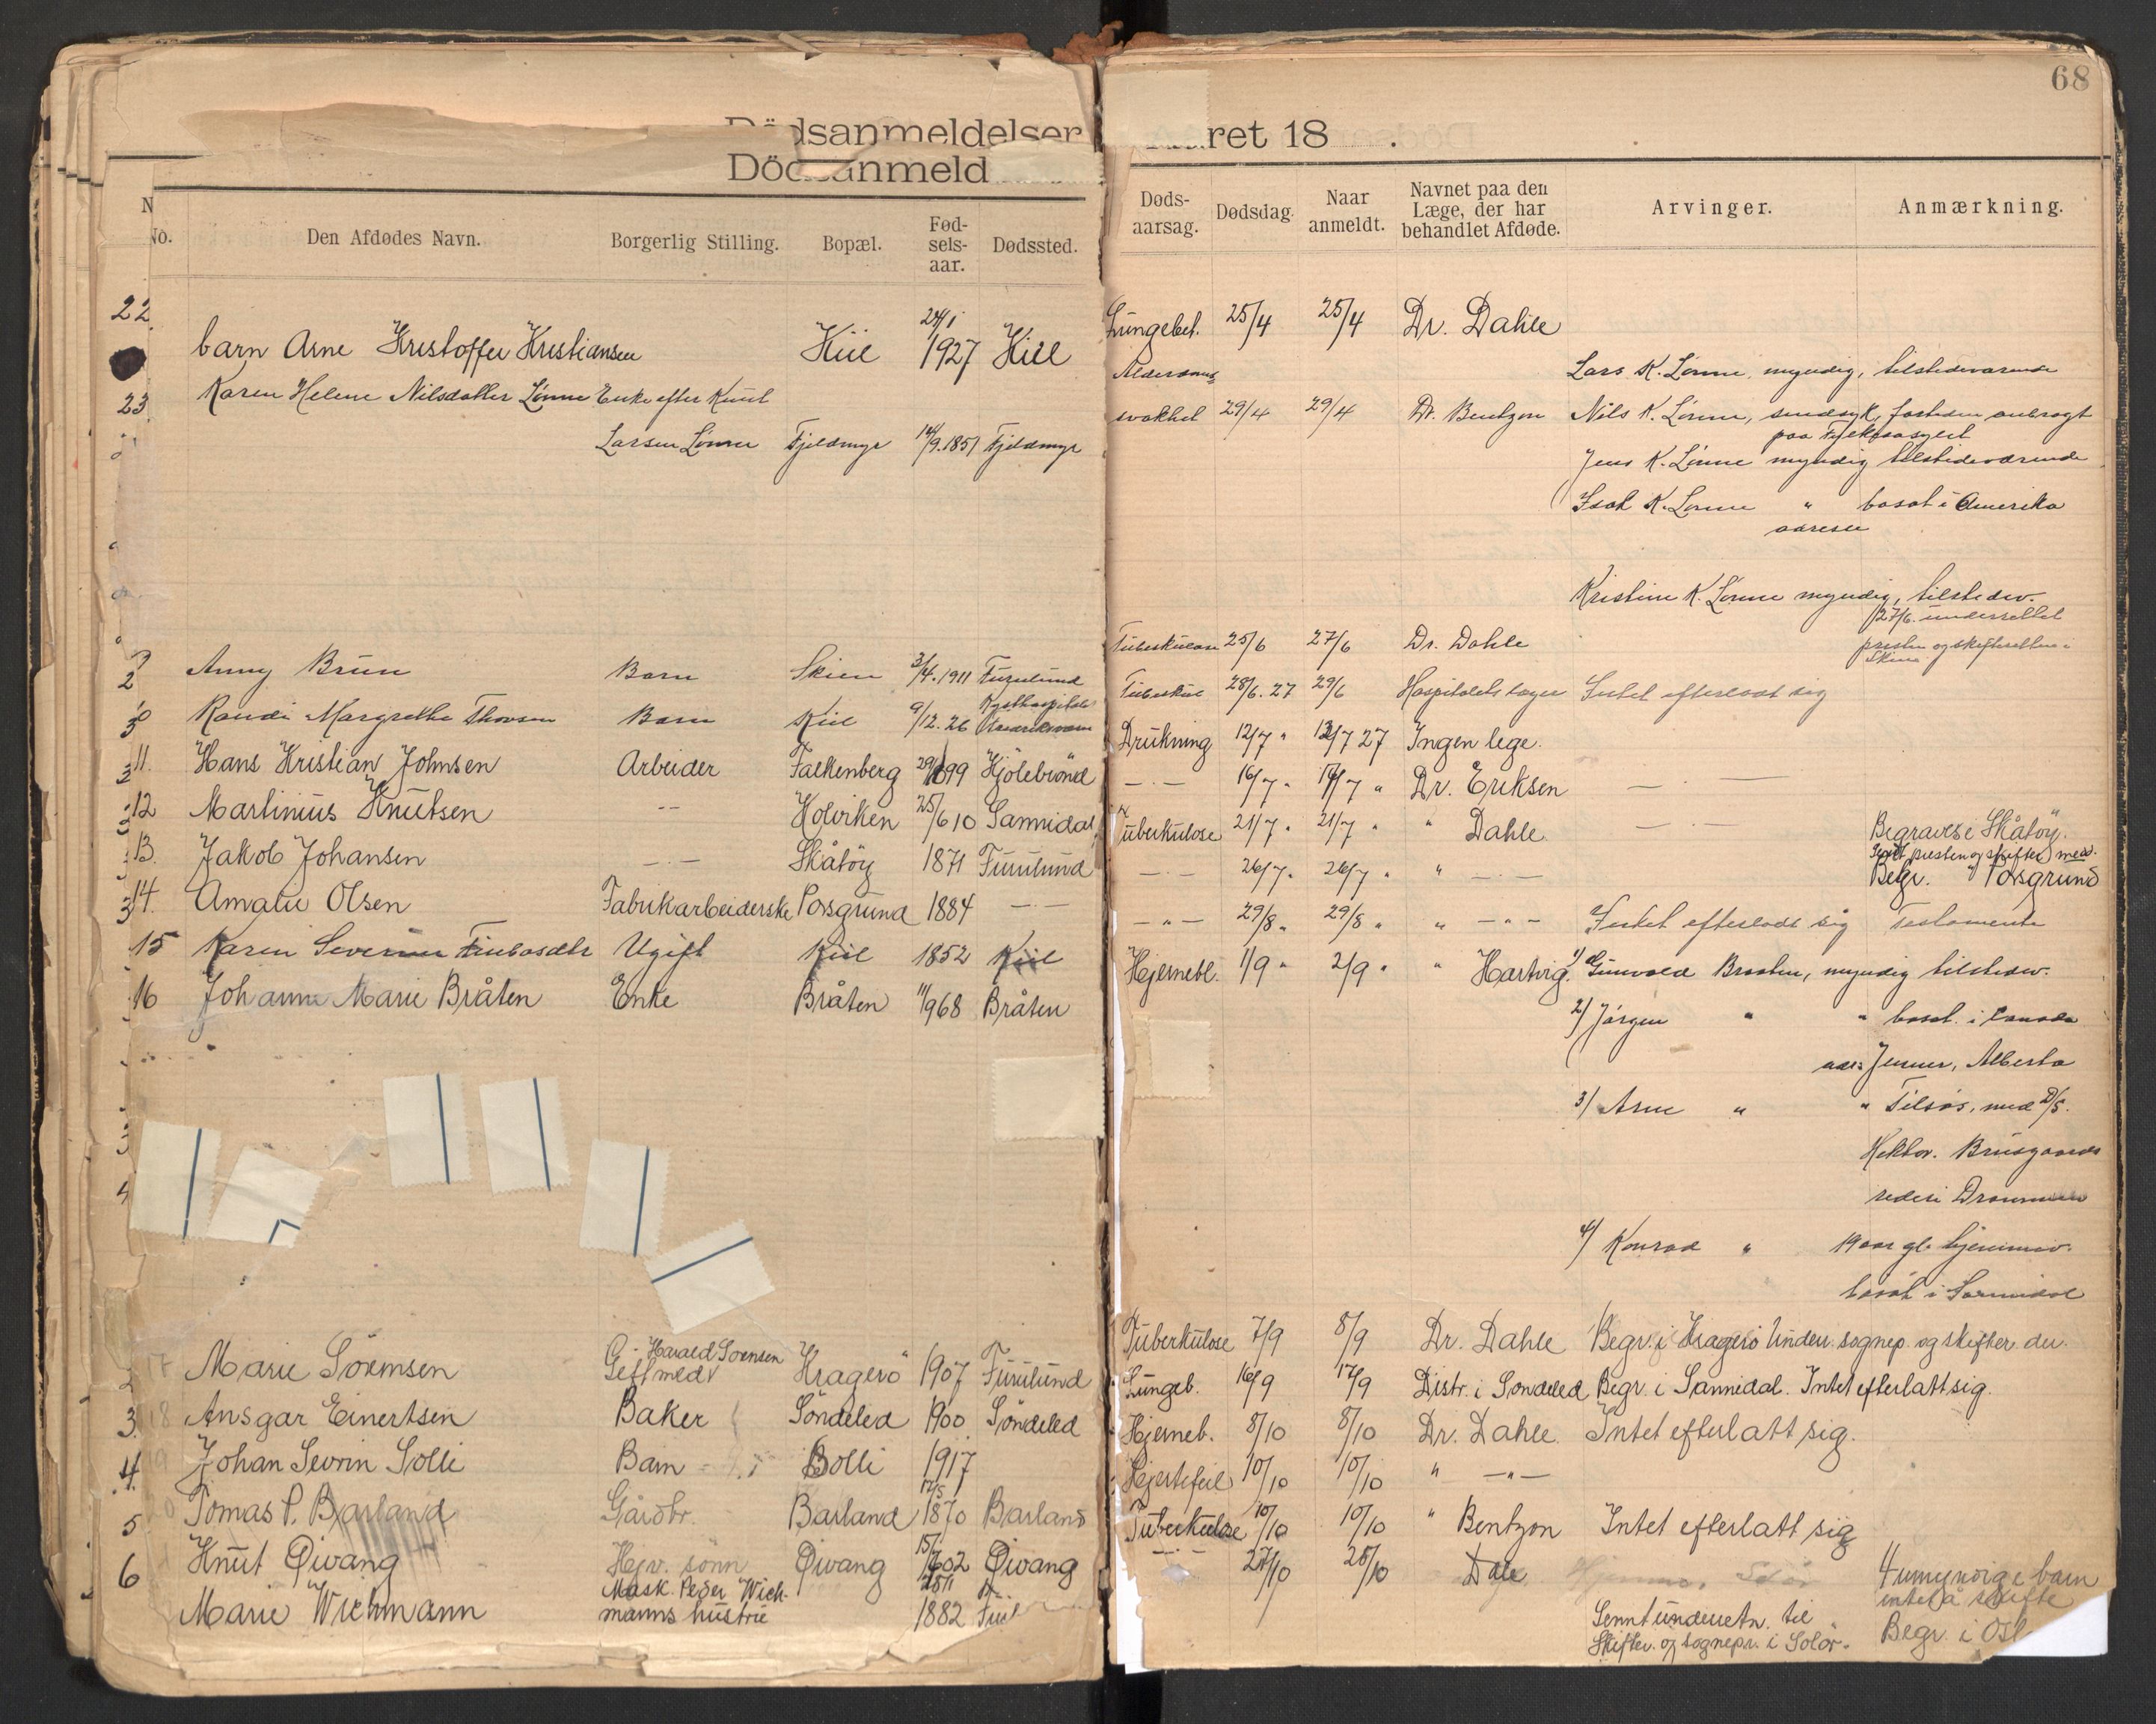 68
Dödsanmeldelser
ret 18 .
Död anmeld
No.
Den Afdødes Navn.
Borgerlig Stilling.
Bopæl.
Fød-
sels-
aar.
Dødssted.
22
barn Arne Kristoffer Kristiansen Kiil 24/1 1927 Kiil
23 Karen Helene Nilsdatter Lønne Enke efter Knut
Larsen Lønne Fjeldmyr 14/9.1851 Fjeldmyr
Anny Brun Barn Skien 3/4.1911 Furulund
Randi Margrethe Thorsen Barn Kiil 9/12.26 Kysthospitalet
11. Hans Kristian Johnsen Arbeider Falkenberg 29/ 99 Kjölebrönd
12 Martinius Knutsen -"- Holviken 25/6 10 Sannidal
13. Jakob Johansen -"- Skåtöy 1871 Furulund
14. Amalie Olsen Fabrikarbeiderske Porsgrund 1884 -"-
15 Karen Severine Ugift Kiil 1852 Kiil
16 Johanne Marie Bråten Enke Bråten 11/9 68 Bråten
17 Marie Sörensen Gift med Harald Sörensen Kragerö 1907 Furulund
18 Ansgar Einertsen Baker Söndeled 1900 Söndeled
Johan Sevrin Solli Barn Solli 1917
Tomas P. Barland Gårdbr. Barland 17/5 1870 Barland
Knut Öivang Hjv. sönn Öivang 1902 Öivang
Marie Wichmann Mask. Peder Wich-
manns hustru 1882
Døds-
aarsag.
Dødsdag.
Naar
anmeldt.
Navnet paa den
Læge, der har
behandlet Afdøde.
Arvinger.
Anmærkning.
Lungebet. 25/4 25/4 Dr. Dahle
Alderdoms
svakhet 29/4 29/4 Dr. Bentzon
Lars K. Lønne, myndig, tilstedeværende
Nils K. Lønne, sindsyk, fortiden anbragt
paa Fylkesasylet
Jens K. Lønne myndig tilstedeværende
Isak K. Lønne " bosat i Amerika
adresse
Kristine K. Lønne myndig, tilstedev.
27/6. underrettet
presten og skifteretten i
Skien
Tuberkulose 25/6 27/6 Dr. Dahle
Tuberkul 28/6.27 29/6 Hospitalets læger Intet efterladt sig
Drukning 12/7 " 13/7 27 Ingen lege.
-"- 16/7 " 17/7 " Dr. Eriksen
Tuberkulose 21/7 " 21/7 " " Dahle -"- Begraves i Skåtöy.
presten og skifter. med.
-"- 26/7 " 26/7 " " -"- Begr. i Porsgrund
-"- 29/8 " 29/8 " " -"- Intet efterladt sig Testamente
Hjernebl. 1/9 " 2/9 " " Hartvig. 1/ Gunvald Braaten, myndig tilstedev.
2/ Jørgen " " bosat i Canada
adr: Jenner, Alberta
3/ Arne " " Tilsøs, med D/S.
Hektor. Bruusgaards
rederi Drammen
4/ Konrad " 19 aar gl. hjemmev.
bosat i Sannidal
Tuberkulose 7/9 8/9 Dr. Dahle Begr. i Kragerö Under. sognep. og skifter. der.
Lungeb. 16/9 17/9 Distr. i Söndeled Begr. i Sannidal. Intet efterlatt sig.
Hjerneb. 8/10 8/10 Dr. Dahle. Intet efterlatt sig.
Hjertefeil 10/10 10/10 " -"-
Tuberkulose 10/10 10/10 " Bentzon Intet efterlatt sig
-"- 27/10 28/10 Dale 4 umyndige barn
intet å skifte
Sennt underretn. til
Skifter. og sognepr. i Solör. Begr. i Osl